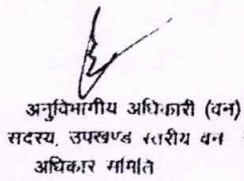 अनुविभागीय अधिकारी (वन)
सदस्य, उपखण्ड स्तरीय वन
अधिकार समिति